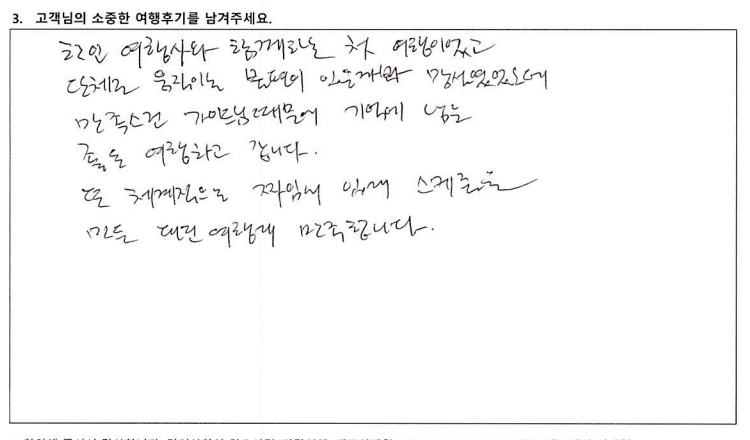 3. 고객님의 소중한 여행후기를 남겨주세요.
여행사와 함께하는 첫 여행이었고
단체로 움직이는 불편이 있을까봐 망설였었는데
만족스런 가이드님 때문에 기억에 남는
좋은 여행하고 갑니다.
또 체계적으로 짜임새 있게 스케줄을
만든 여행에 만족합니다.